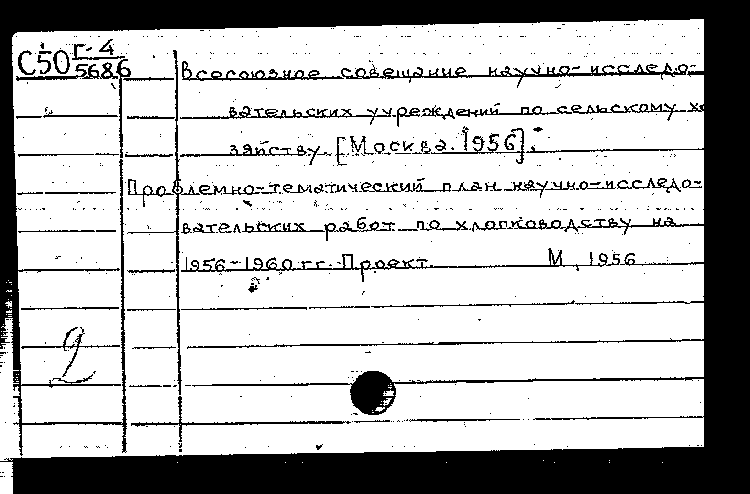 С50 Г-4
5686
Всесоюзное совещание научно-исследо-
вательских учреждений по сельскому хо
зяйству. [Москва. 1956].
Проблемно-тематический план научно-исследо-
вательских работ по хлопководству на
1956-1960 гг. Проект. М, 1956
2